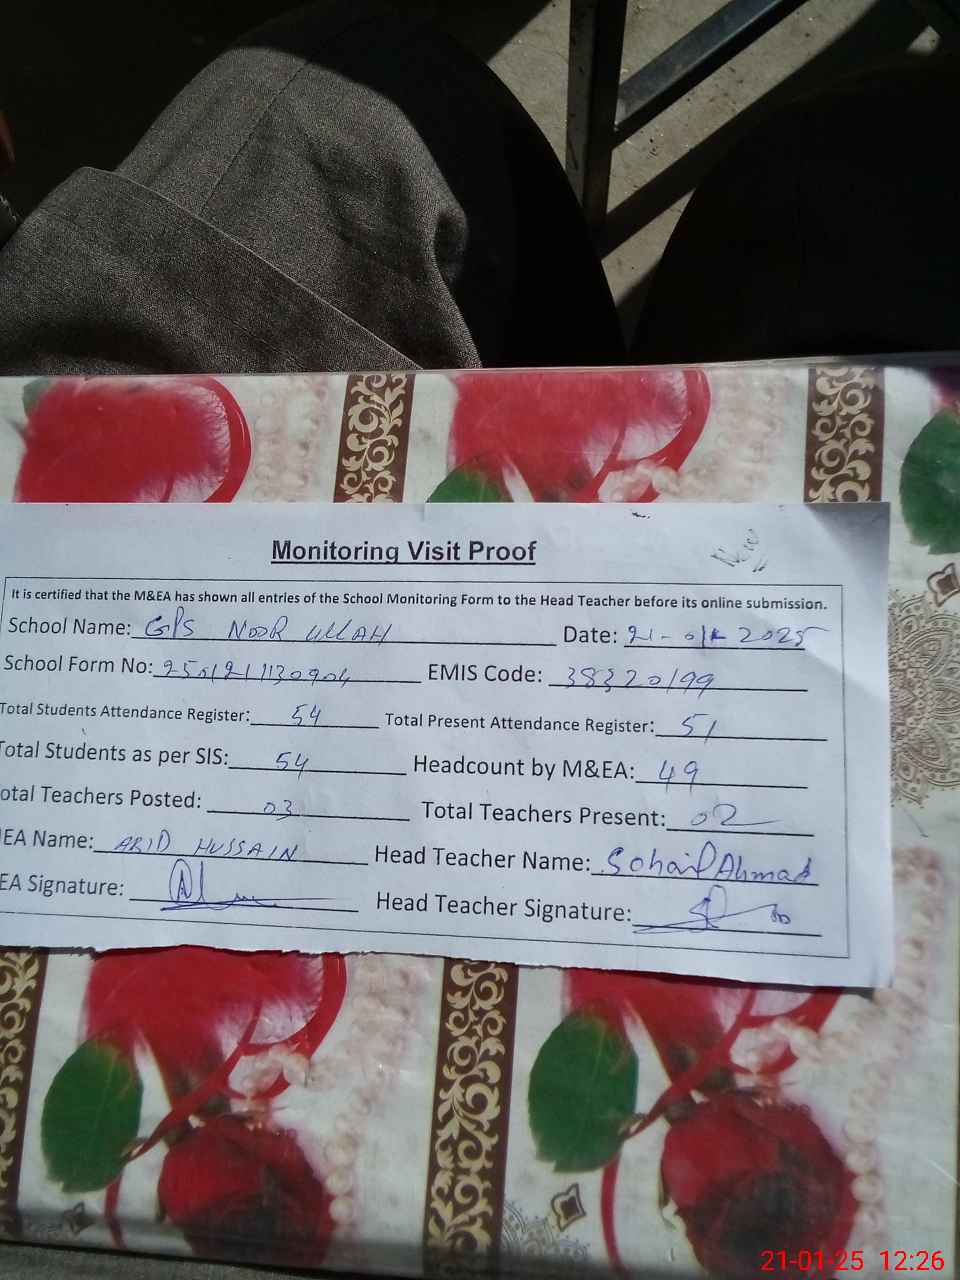 New
Monitoring Visit Proof
It is certified that the M&EA has shown all entries of the School Monitoring Form to the Head Teacher before its online submission.
School Name: GPS NOOR ULLAH Date: 21-01-2025
School Form No: EMIS Code: 38320199
Total Students Attendance Register: 54 Total Present Attendance Register: 51
Total Students as per SIS: 54 Headcount by M&EA: 49
otal Teachers Posted: 03 Total Teachers Present: 02
EA Name: ARID HUSSAIN Head Teacher Name: Sohail Ahmad
EA Signature: Head Teacher Signature:
21-01-25 12:26